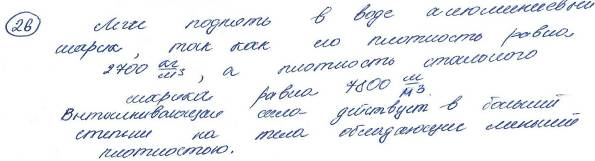 26 Легче поднять в воде алюминиевый
шарик, так как его плотность равна
2700 кг/м³, а плотность стального
шарика равна 7800 кг/м³.
Выталкивающая сила действует в большей
степени на тела обладающие меньшей
плотностью.